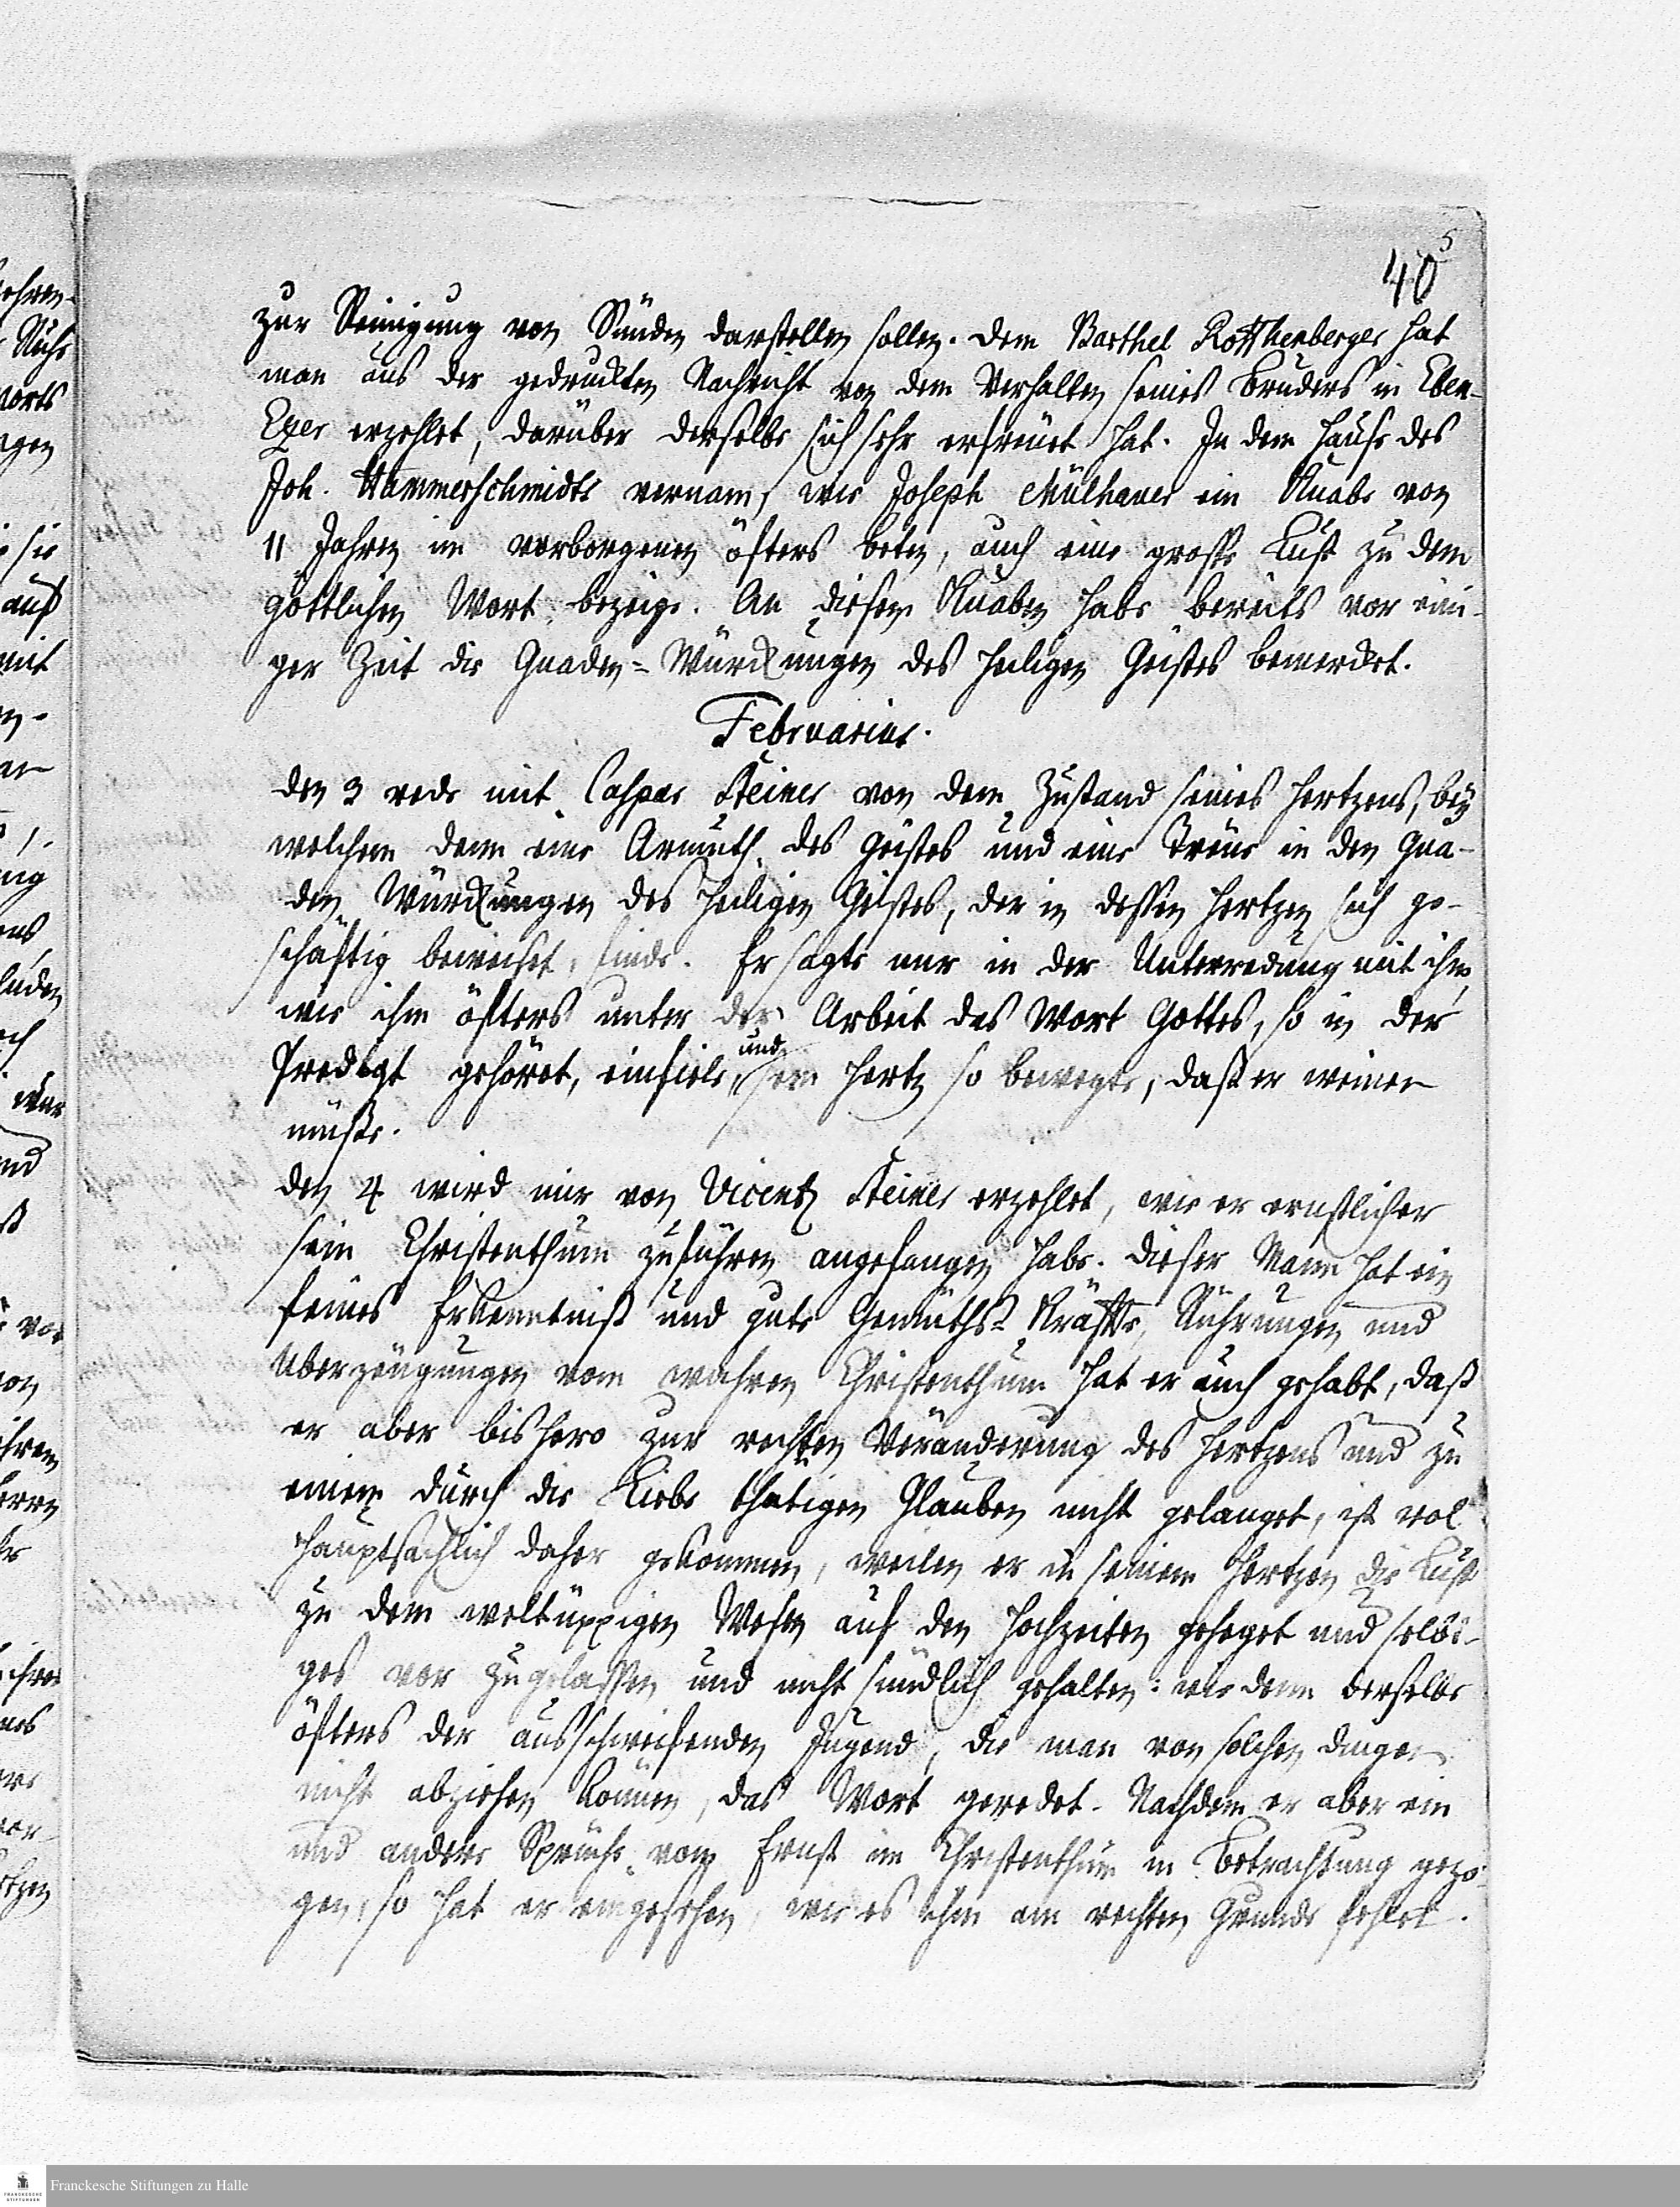 5
40
zur Reinigung von Sünden darstellen sollen. Dem Barthel Rotthenberger hat
man aus der gedruckten Nachricht von dem Verhalten seines Bruders in Eben-
Ezer erzehlet, darüber derselbe sich sehr erfreuet hat. In dem Hause des
Joh. Hammerschmidts vernam, wie Joseph Mülhauer ein Knabe von
11 Jahren im verborgenen öfters beten, auch eine grosse Lust zu dem
göttlichen Wort bezeige. An diesem Knaben habe bereits vor eini-
ger Zeit die Gnaden-Würckungen des Heiligen Geistes bemercket.
Februarius.
den 3 rede mit Caspar Steiner von dem Zustand seines Hertzens, bey
welchem denn eine Armuth des Geistes und eine Treue in den Gna-
den Würckungen des Heiligen Geistes, der in dessen Hertzen sich ge-
schäftig beweiset, finde. Er sagte mir in der Unterredung mit ihm,
wie ihm öfters unter der Arbeit das Wort Gottes, so in der
Predigt gehöret, einfiele, und sein Hertz so bewegte, daß er weinen
müste.
den 4 wird mir von Vicentz Steiner erzehlet, wie er ernstlicher
sein Christenthum zuführen angefangen habe. Dieser Mann hat ein
feines Erkenntniß und gute Gemüths-Kräffte, Rührungen und
Uberzeugungen vom wahren Christenthum hat er auch gehabt, daß
er aber bishero zur rechten Veränderung des Hertzens und zu
einem durch die Liebe thätigen Glauben nicht gelanget, ist wol
hauptsächlich daher gekommen, weilen er in seinem Hertzen die Lust
zu dem weltüppigen Wesen auf den Hochzeiten geheget und selbi-
ges vor zugelassen und nicht sündlich gehalten: wie denn derselbe
öfters der ausschweifenden Jugend, die man von solchen Dingen
nicht abziehen können, das Wort geredet. Nachdem er aber ein
und andere Sprüche vom Ernst im Christenthum in Betrachtung gezo-
gen, so hat er eingesehen, wie es ihm am rechten Grunde fehlet.
Franckesche Stiftungen zu Halle